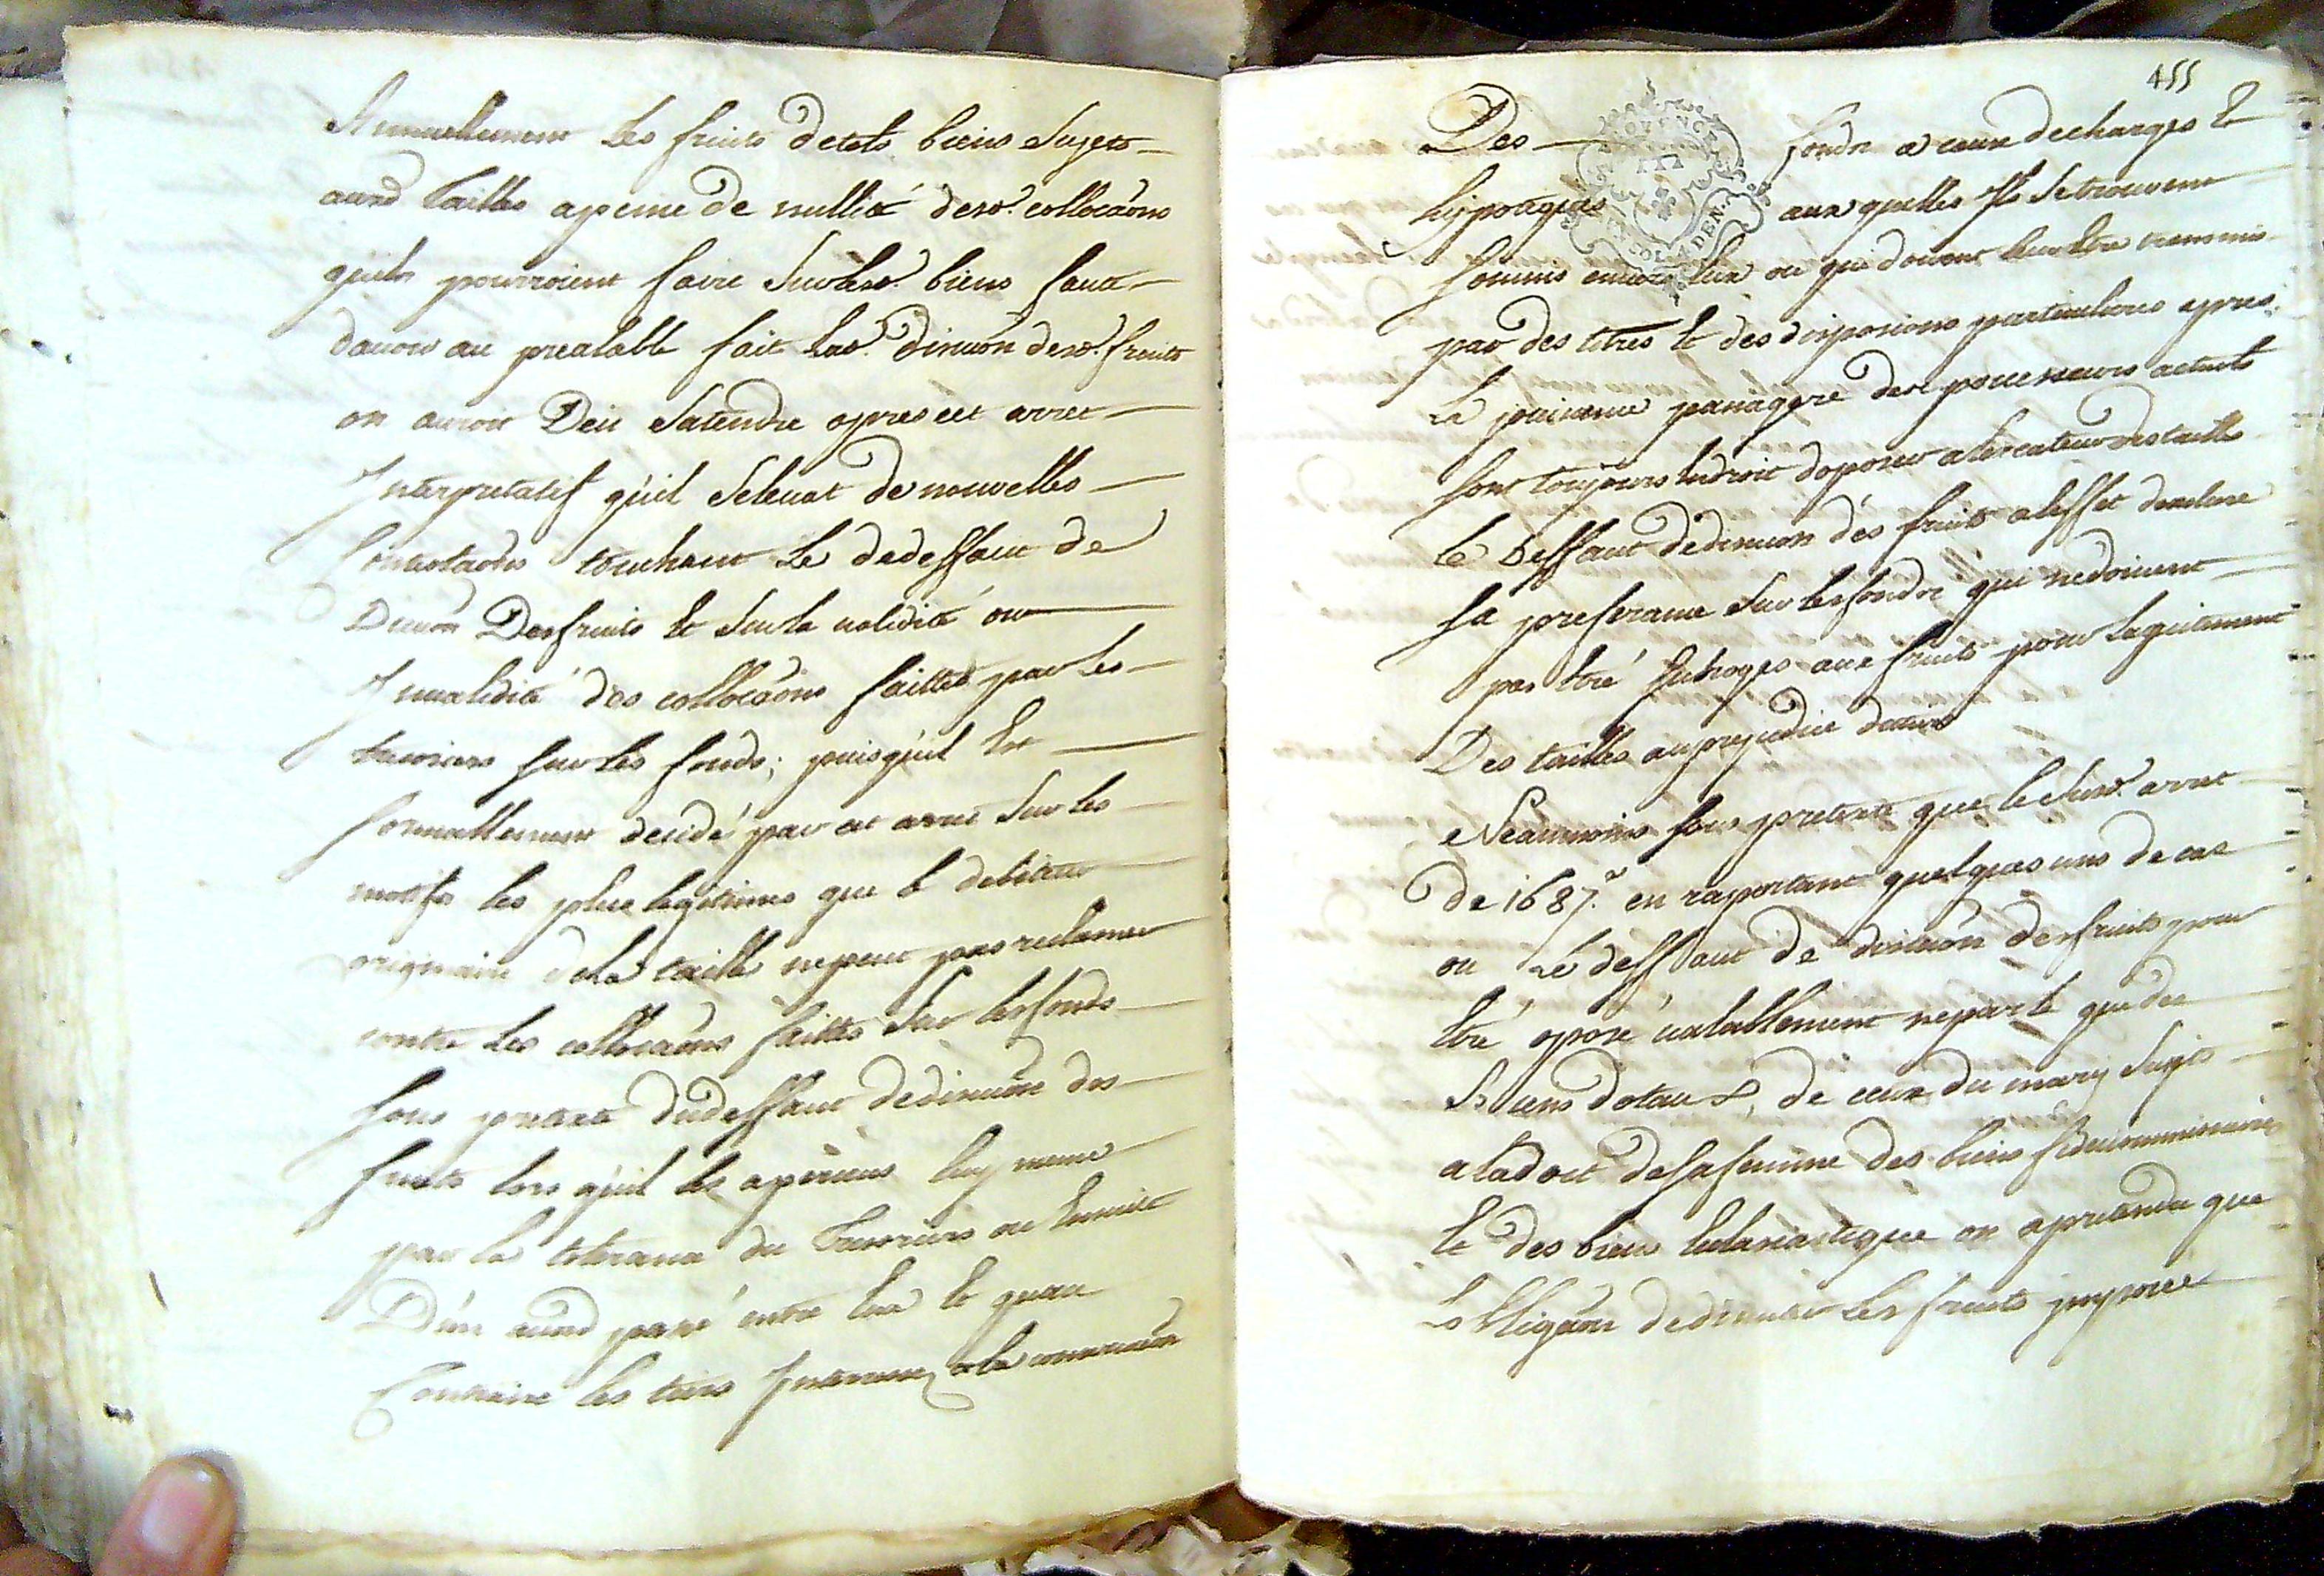 Annuellement les fruits detels biens Sujets
auxd Tailles apeine de nullité desd. collocãons
quils pourroient faire Surlesd. biens faute
dauoir au prealable fait lad. discuõn desd. fruits
on auroit Deu Satendre apres cet arret
Interpretatif quil Seleuat de nouvelles
Contestaõns touchant Le dedeffaut de
Discuõn Desfruits et Surla validité ou
Inualidité des collocãons faittes par les
tresoriers sur les fonds; puisquil Est
formellement decidé par cet arret Sur les
motifs les plus legitimes que le debiteur
originaire dela taille nepeut pas reclamer
contre Les collocãons faittes Sur lesfonds
sous pretexte dudeffaut dediscuõn des
fruits lors quil les aperceus luy meme
par la tolerance du Tresoriers ou Ensuite
D'un acord passé entre Eux et quau
Contraire les tiers Interessez ala conseruaõn
455
Des fonds a ceux decharges et
hypoteques aux quelles Ils Setrouvent
soumis enuers Eux ou qui doiuent leur Etre transmis
par des titres et des disposiõns particulieres apres
La jouissance passagere des possesseurs actuels
sont toujours Endroit doposer alexacteur des tailles
le Deffaut dediscuõn des fruits aleffet dexclure
sa preferance Sur lesfonds qui nedoiuent
pas Etre Subroges aux fruits pour lequitement
Des tailles auprejudice dautruy
Neaumoins sous pretexte que le Susd. arret
De 1687. en raportant quelques uns de cas
ou Le deffaut de discuõn desfruits peut
Etre oposé ualablement neparle que des
Biens dotaux, de ceux du mary Sujets
aladot desafemme des biens fideicommissaires
Et des biens Eclesiastique on apretendu que
Lobligãon dediscuter les fruits imposée